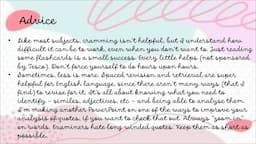 Advice
• Like most subjects, cramming isn't helpful, but I understand how
difficult it can be to work, even when you don't want to. Just reading
some flashcards is a small success. Every little helps (not sponsored
by Tesco). Don't force yourself to do hours upon hours.
• Sometimes, less is more. Spaced revision and retrieval are super
helpful for English language, since there aren't many ways (that I
find) to revise for it. It's all about knowing what you need to
identify - similes, adjectives, etc - and being able to analyse them.
I'm making another PowerPoint on one of the ways to improve your
analysis of quotes, if you want to check that out. Always "zoom in"
on words. Examiners hate long winded quotes. Keep them as short as
possible.